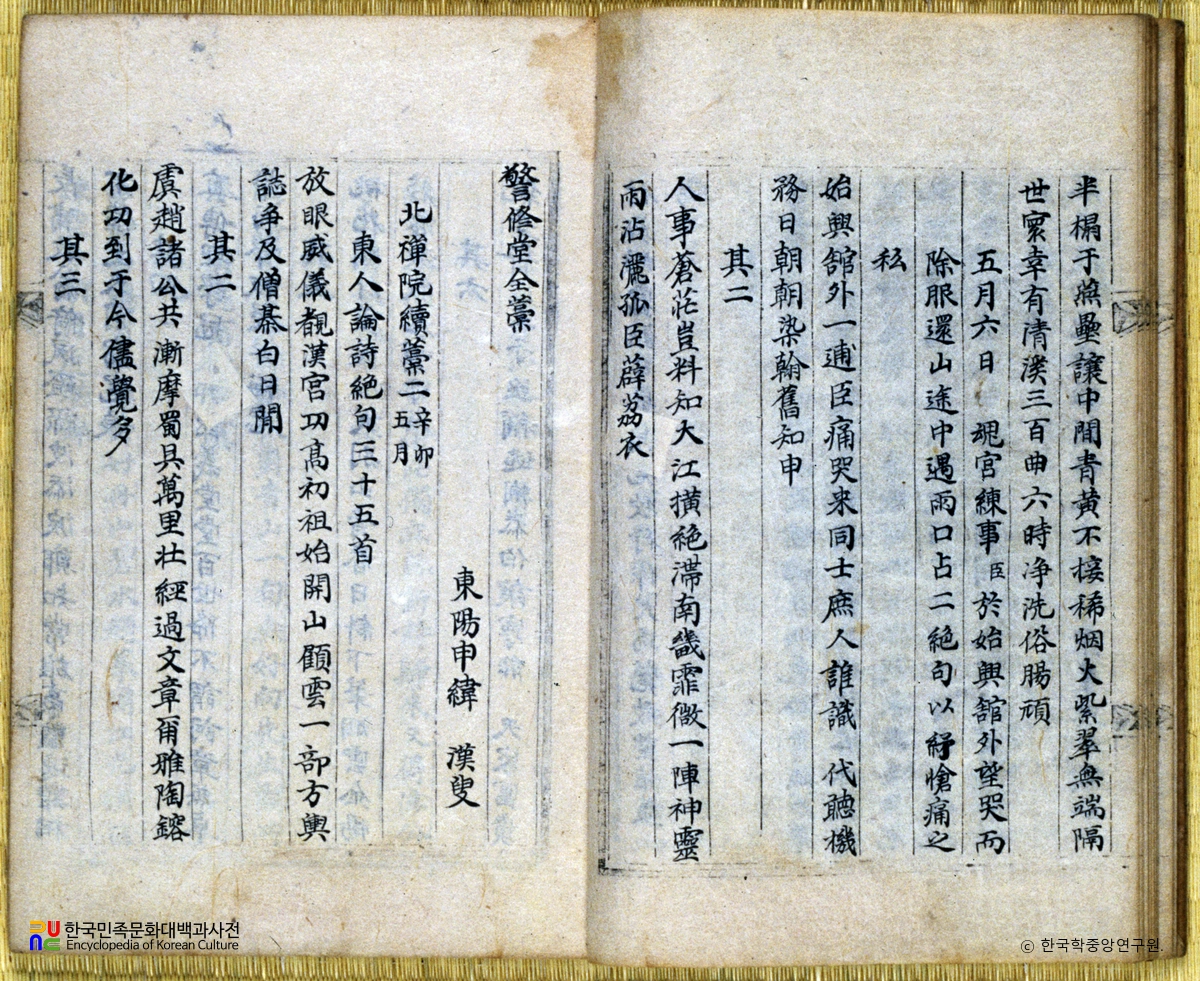 半榻于蕉壘讓中間青黃不接稀烟火紫翠無端隔
世寰幸有清溪三百曲六時净洗俗腸頑
五月六日 魂宮練事臣於始興舘外望哭而
除服還山途中遇雨口占二絶句以紓愴痛之
私
始興舘外一逋臣痛哭来同士庶人誰識 代聽機
務日朝朝染翰舊知申
其二
人事蒼茫豈料知大江橫絶滯南畿霏微一陣神靈
雨沾灑孤臣薜荔衣
警修堂全藁
北禪院續藁二 辛卯五月
東陽申緯 漢叟
東人論詩絶句三十五首
放眼威儀覩漢宮功高初祖始開山顧雲一部方輿
誌争及僧棊白日閒
其二
虞趙諸公共漸摩蜀吳萬里壯經過文章爾雅陶鎔
化功到于今儘覺多
其三
한국민족문화대백과사전
Encyclopedia of Korean Culture
© 한국학중앙연구원.